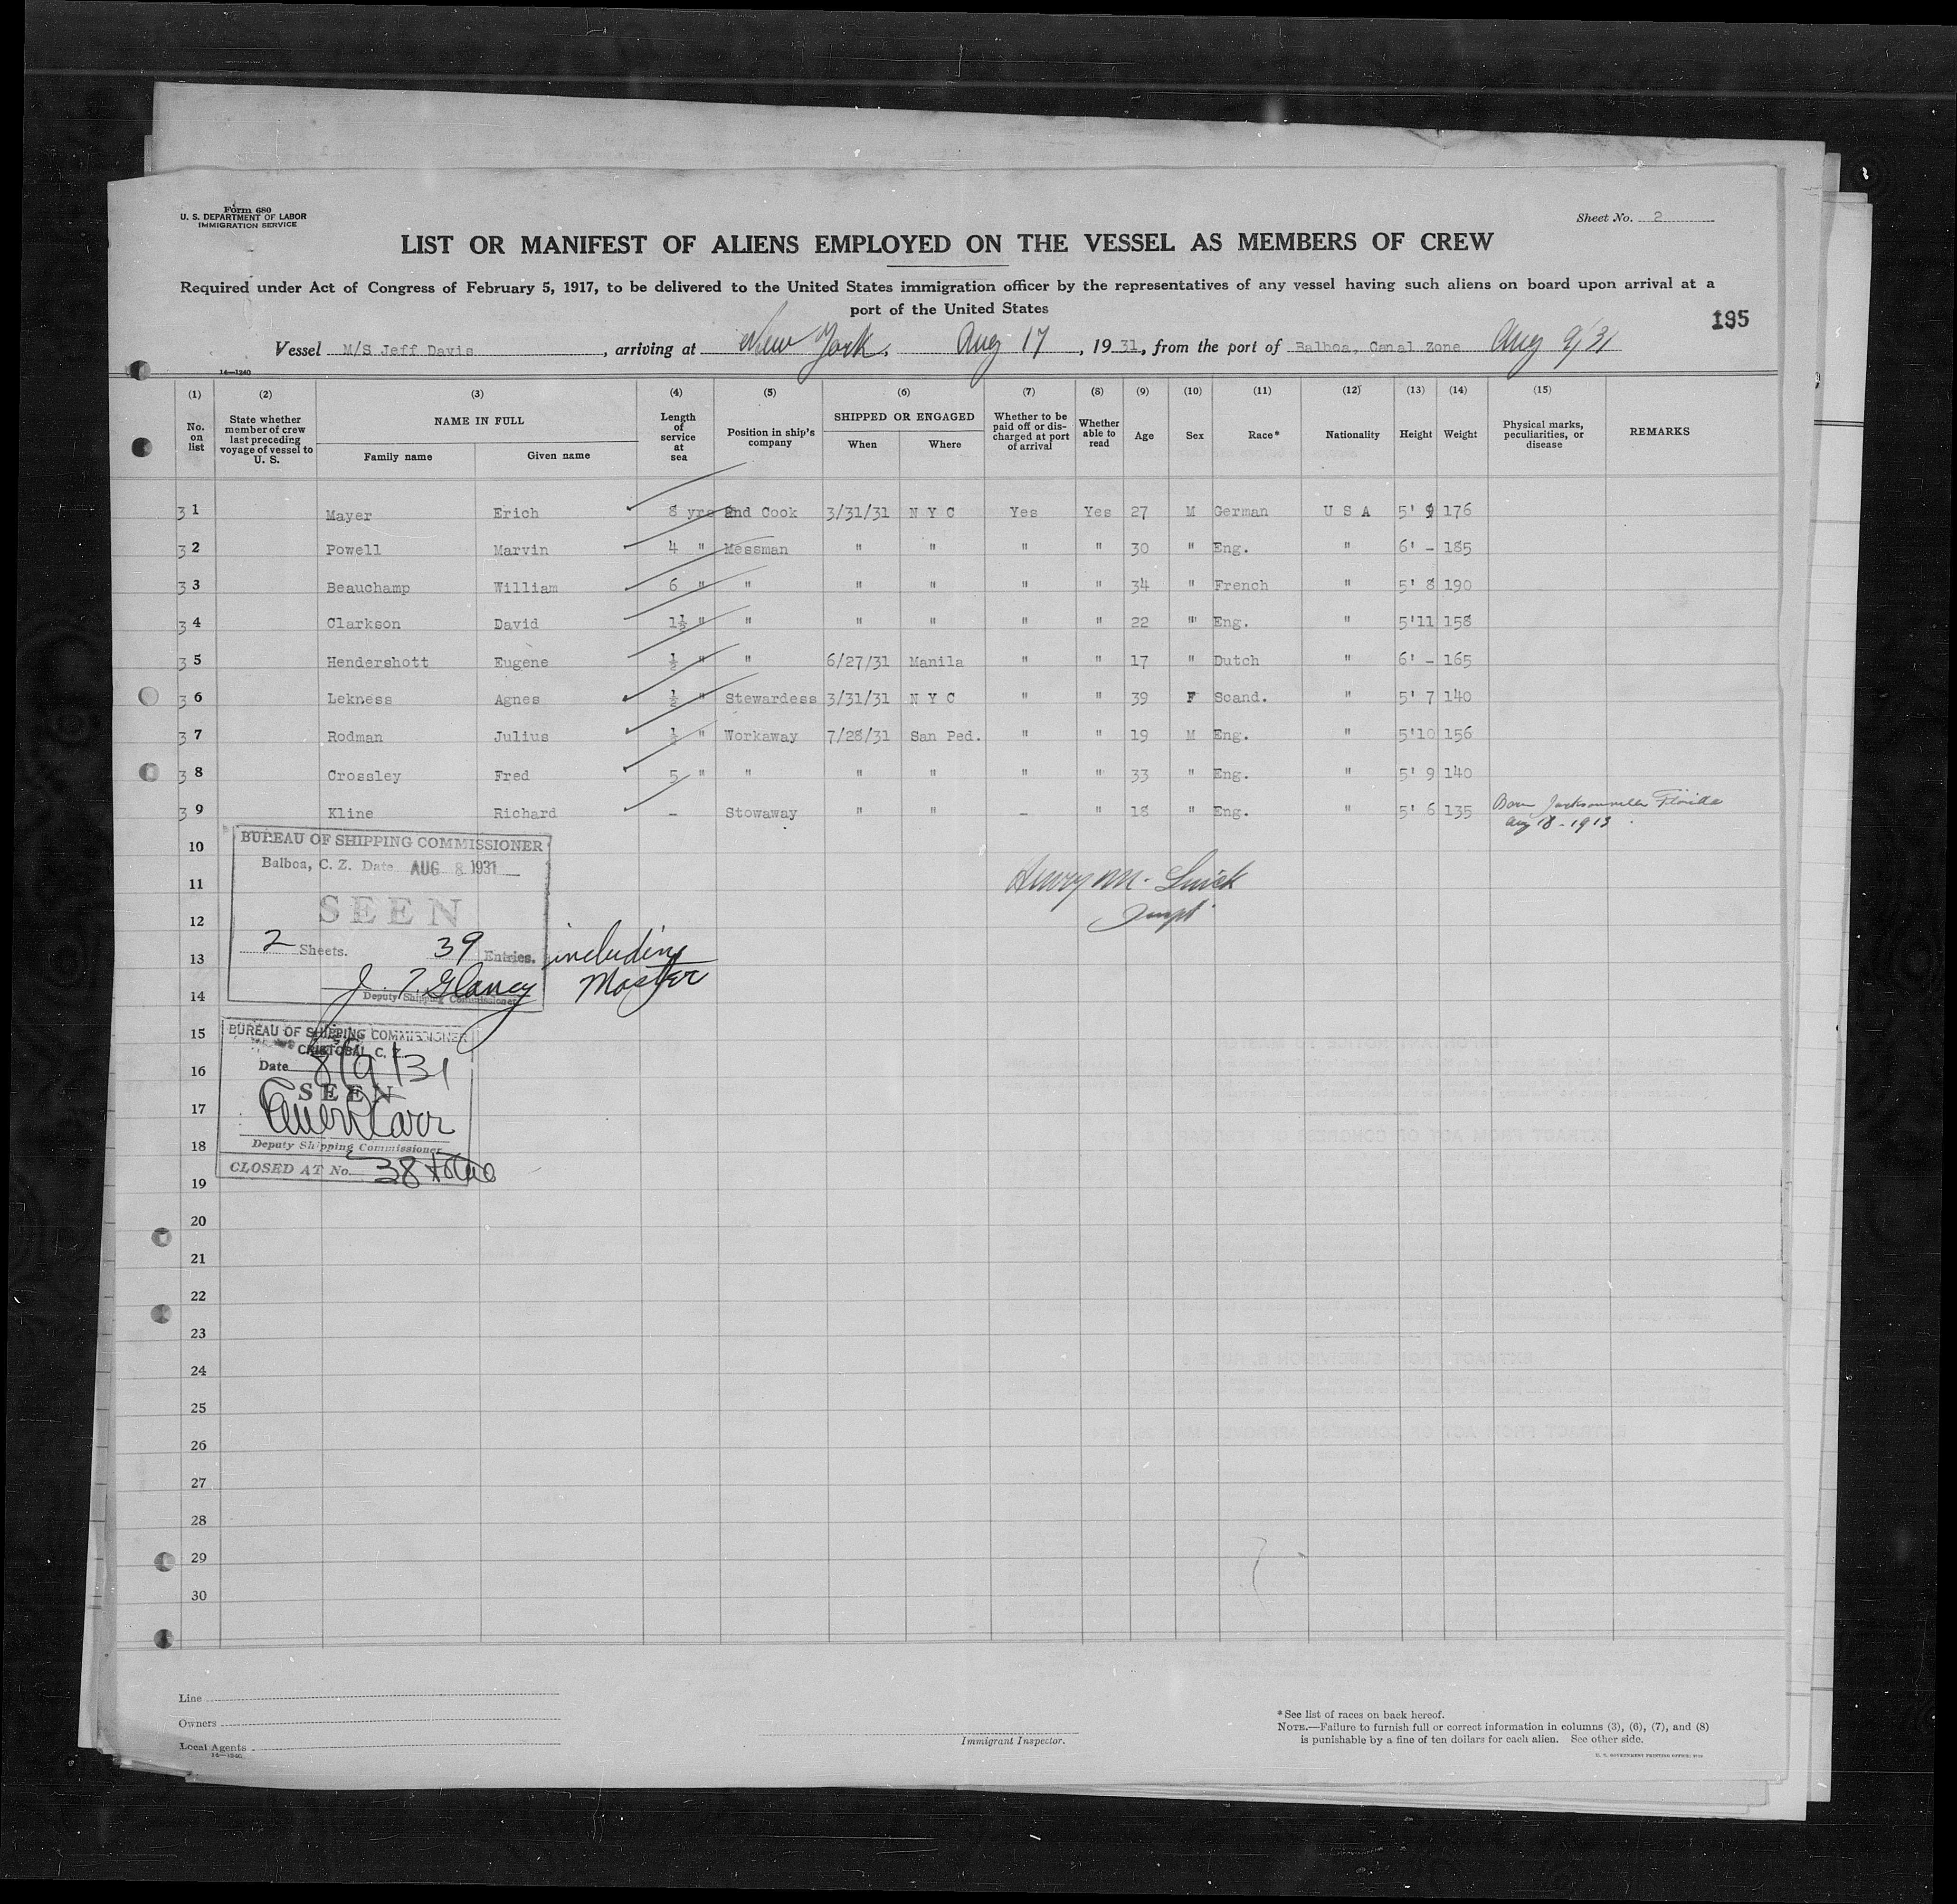 Form 680
U. S. DEPARTMENT OF LABOR
IMMIGRATION SERVICE
Sheet No. 2
LIST OR MANIFEST OF ALIENS EMPLOYED ON THE VESSEL AS MEMBERS OF CREW
Required under Act of Congress of February 5, 1917, to be delivered to the United States immigration officer by the representatives of any vessel having such aliens on board upon arrival at a
port of the United States
195
Vessel M/S Jeff Davis, arriving at New York, Aug 17, 1931, from the port of Balboa, Canal Zone Aug 9/31
14—1240
(1) (2) (3) (4) (5) (6) (7) (8) (9) (10) (11) (12) (13) (14) (15)
No. on list
State whether member of crew last preceding voyage of vessel to U. S.
NAME IN FULL
Family name Given name
Length of service at sea
Position in ship's company
SHIPPED OR ENGAGED
When Where
Whether to be paid off or discharged at port of arrival
Whether able to read
Age Sex Race* Nationality Height Weight
Physical marks, peculiarities, or disease
REMARKS
31 Mayer Erich 8 yrs 2nd Cook 3/31/31 N Y C Yes Yes 27 M German U S A 5' 9 176
32 Powell Marvin 4 " Messman " " " " 30 " Eng. " 6' - 185
33 Beauchamp William 6 " " " " " " 34 " French " 5' 8 190
34 Clarkson David 1½ " " " " " " 22 " Eng. " 5'11 158
35 Hendershott Eugene ½ " " 6/27/31 Manila " " 17 " Dutch " 6' - 165
36 Lekness Agnes ½ " Stewardess 3/31/31 N Y C " " 39 F Scand. " 5' 7 140
37 Rodman Julius ½ " Workaway 7/28/31 San Ped. " " 19 M Eng. " 5'10 156
38 Crossley Fred 5 " " " " " " 33 " Eng. " 5' 9 140
39 Kline Richard - Stowaway " " - " 18 " Eng. " 5' 6 135 Born Jacksonville Florida
Aug 18 - 1913
10
11
12
13
14
15
16
17
18
19
20
21
22
23
24
25
26
27
28
29
30
BUREAU OF SHIPPING COMMISSIONER
Balboa, C. Z. Date AUG 8 1931
SEEN
2 Sheets. 39 Entries. including
Master
J. T. Glancy
Deputy Shipping Commissioner
Henry M.
BUREAU OF SHIPPING COMMISSIONER
CRISTOBAL C. Z.
Date 8/9/31
SEEN
Carr
Deputy Shipping Commissioner
CLOSED AT No. 38 total
Line
Owners
Local Agents
14—1240
Immigrant Inspector.
*See list of races on back hereof.
NOTE.—Failure to furnish full or correct information in columns (3), (6), (7), and (8)
is punishable by a fine of ten dollars for each alien. See other side.
U. S. GOVERNMENT PRINTING OFFICE